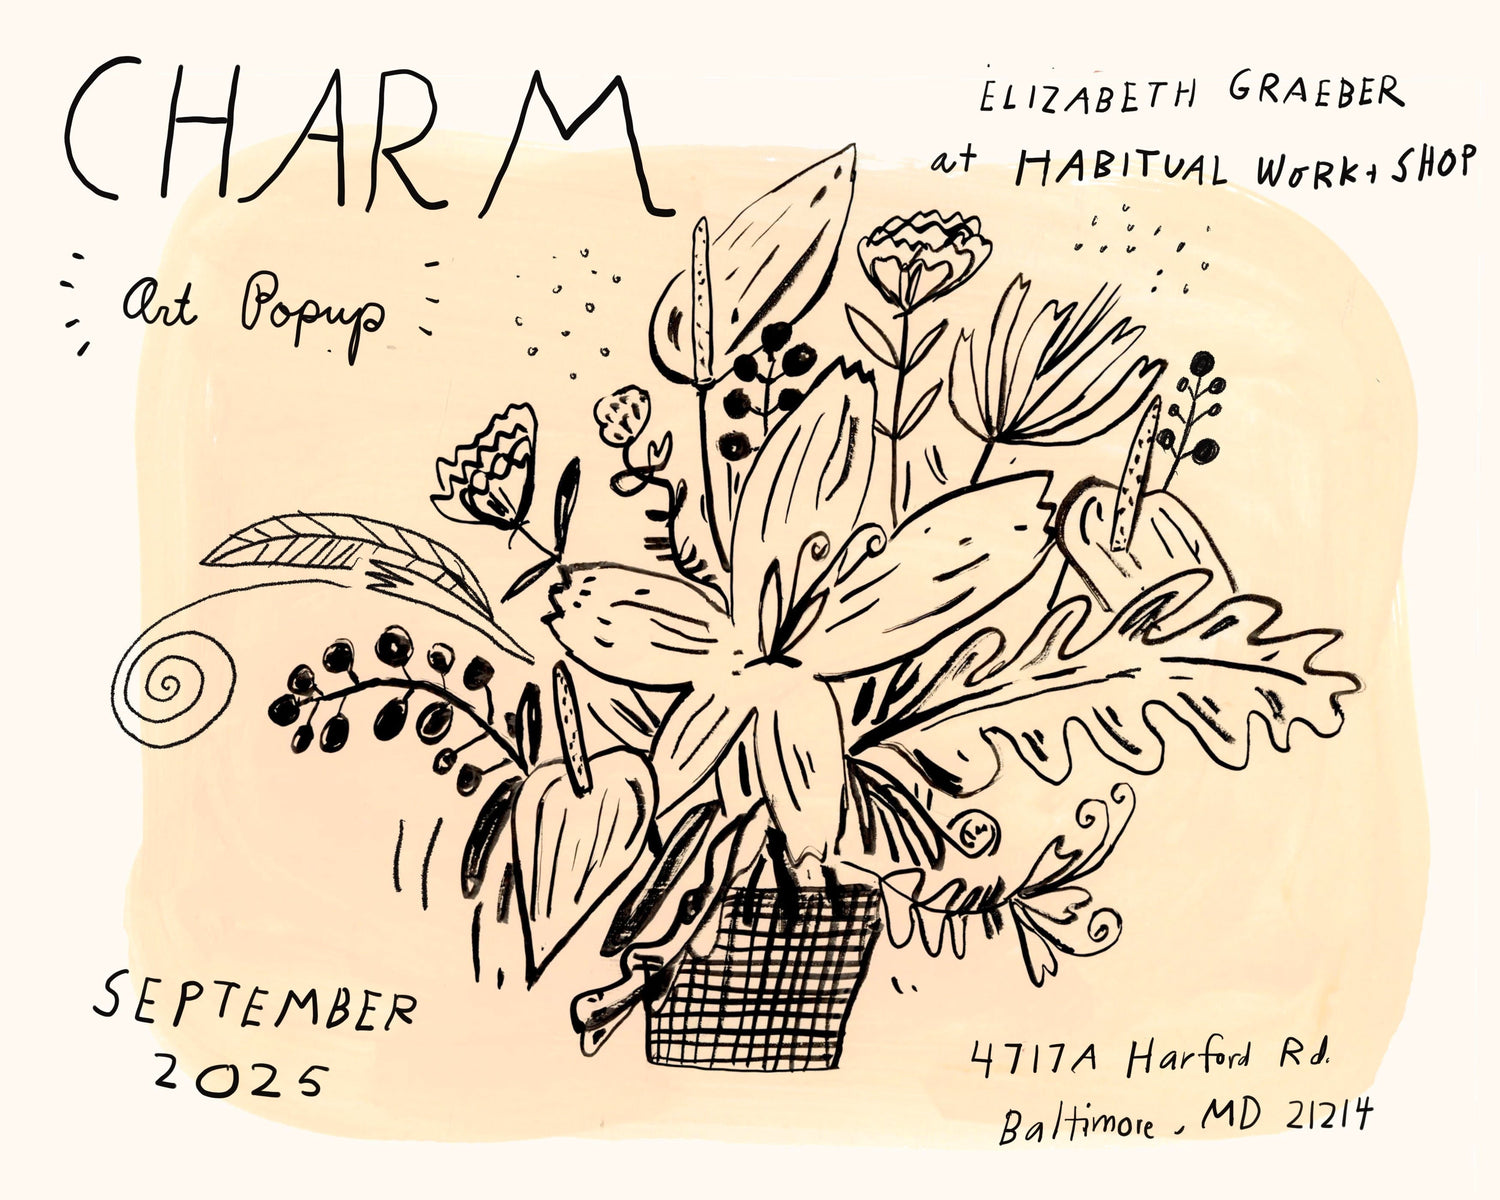 CHARM
ELIZABETH GRAEBER
at HABITUAL WORK+SHOP
Art Popup
SEPTEMBER
2025
4717A Harford Rd.
Baltimore, MD 21214